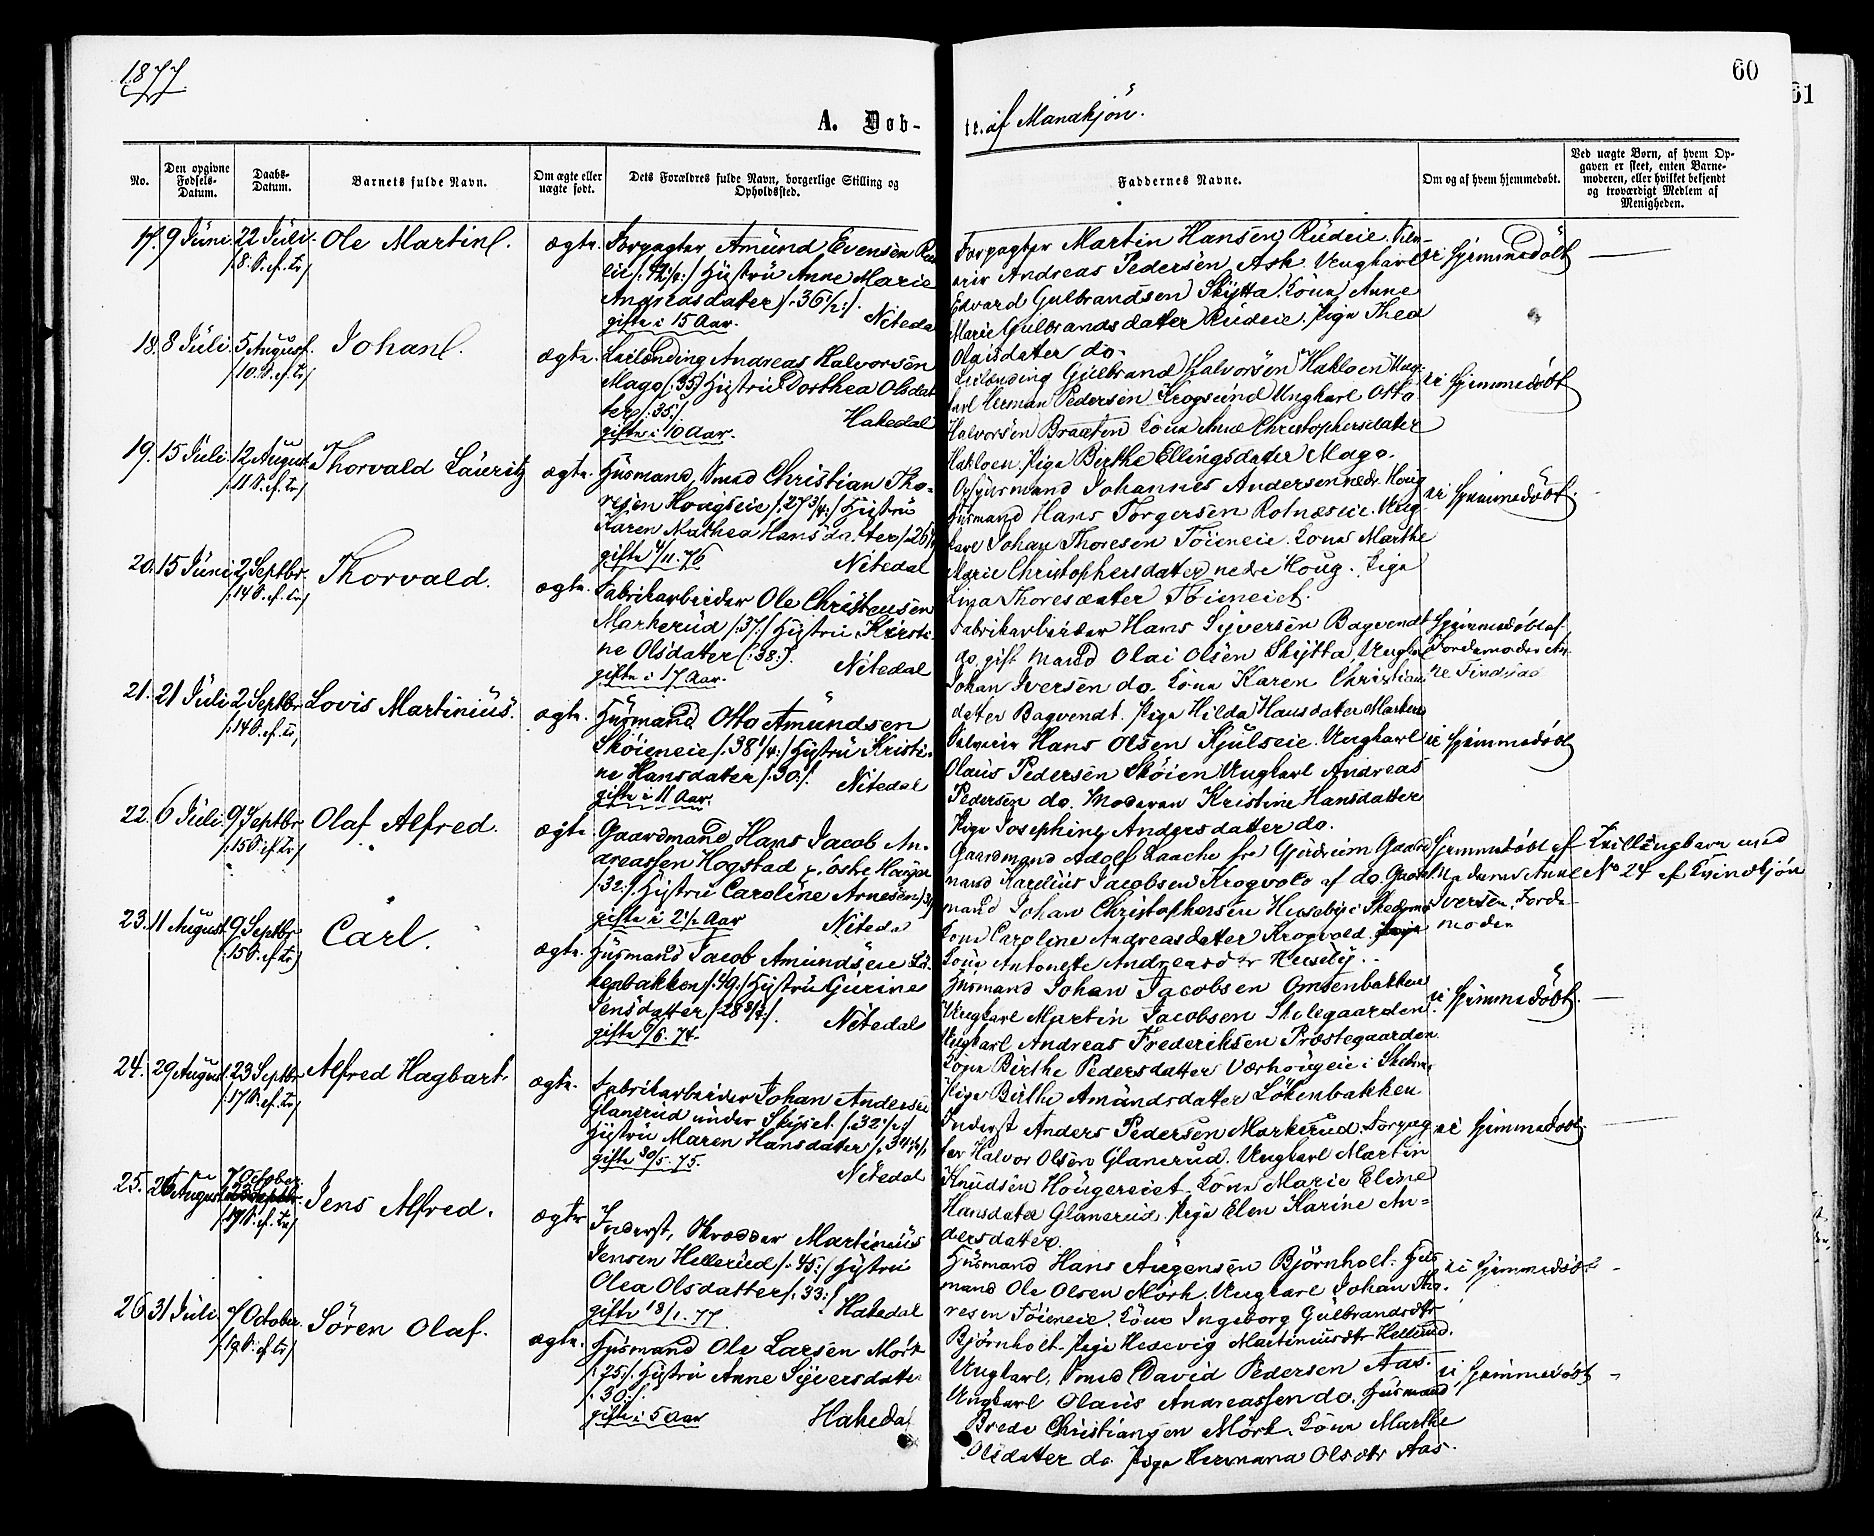 1877
60
61
A. Døb-
te. af Mandkjön.
No.
Den opgivne Fødsels-Datum.
Daabs-Datum.
Barnets fulde Navn.
Om ægte eller uægte født.
Dets Forældres fulde Navn, borgerlige Stilling og Opholdssted.
Faddernes Navne.
Om og af hvem hjemmedøbt.
Ved uægte Børn, af hvem Op-
gaven er skeet, enten Barne-
moderen, eller hvilket bekjendt
og troværdigt Medlem af
Menigheden.
17. 9 Juni. 22 Juli. Ole Martin. ægte.
/:8. S. ef. Tr/
Forpagter Amund Evensen
Hustru Anne Marie
Andreasdater /:36 1/2:/.
gifte i 15 Aar. Nitedal
Forpagter Martin Hansen Rudeie.
Andreas Pedersen Ask. Ungkarl
Edvard Gulbrandsen Skytta. Kona Anne
Marie Gulbrandsdatter Rudeie. Pige Thea
Olaisdater do.
ei hjemmedöbt
18. 8 Juli. 5 August. Johan. ægte.
/:10. S. ef. Tr/
Leilænding Andreas Halvorsen
Mago (:35) Hustru Dorthea Olsdat
ter /:35:/.
gifte i 10 Aar. Hakedal
Leilænding Gulbrand Halvorsen Hakloen Ung-
karl Herman Pedersen Krogsund Ungkarl Otto
Halvorsen Braaten Kona Anne Christophersdater
Hakloen. Pige Birthe Ellingsdater Mago.
ei hjemmedöbt
19. 15 Juli. 12 August. Thorvald Lauritz ægte.
/:11 S. ef. Tr/
Husmand, Smed Christian Tho-
resen Hougseie /:27 3/4:/ Hustru
Karen Mathea Hansdatter
gifte 76 Nitedal
Johannes Andersen nedr. Houg
Husmand Hans Torgersen Rotnæseie. Ung-
karl Johan Thoresen Töieneie. Kona Marthe
Marie Christophersdater nedre Houg. Pige
Lina Thoresdater Töieneiet.
ei hjemmedöbt.
20. 15 Juni 2 Septbr. Thorvald. ægte.
/:14 S. ef. Tr/
Fabrikarbeider Ole Christensen
Markerud /:37:/ Hustru Kirsti-
ne Olsdatter (:38:).
gifte i 17 Aar. Nitedal
Fabrikarbeider Hans Syversen Bagvendt
do. gift Mand Olai Olsen Skytta, Ungkarl
Johan Iversen do. Kona Karen Christians
dater Bagvendt. Pige Hilda Hansdater Markerud
hjemmedöbt af
Jordemoder An-
ne Findstad
21. 21 Juli 2 Septbr. Lovis Martinius. ægte.
/:14 S. ef. Tr/
Husmand Otto Amundsen
Sköieneie /:38 1/4:/ Hustru Kristi-
ne Hansdater /:30:/.
gifte i 11 Aar. Nitedal
Hans Olsen Kjulseie. Ungkarl
Olaus Pedersen Sköien Ungkarl Andreas
Pedersen do. Moderen Kristine Hansdatter
Pige Josephine Andersdatter do.
ei hjemmedöbt
22. 6 Juli. 9 Septbr. Olaf Alfred. ægte
/:15 S. ef. Tr/
Gaardmand Hans Jacob An-
dreassen Hogstad
/:32:/ Hustru Caroline Arnesen
gifte i 2 1/2 Aar Nitedal
Gaardmand Adolf Laache fra Gjerdrum Gaard
mand Karelius Jacobsen Krogvold af do. Gaard
mand Johan Christophersen Huseby i Skedsmo
Kona Caroline Andreasdater Krogvold.
Kona Antonette Andreasdtr Huseby.
Hjemmedöbt af
Madame Anne
Iversen, Jorde-
moder
Tvillingbarn med
No 24 af Kvindekjön
23. 11 August 9 Septbr. Carl. ægte.
(:15 S. ef. Tr)
Husmand Jacob Amundsen Lö-
kenbakken /:49:/ Hustru Gurine
Jensdatter
gifte 74. Nitedal
Husmand Johan Jacobsen
Ungkarl Martin Jacobsen Skolegaarden.
Ungkarl Andreas Frederiksen Præstegaarden
Kona Birthe Pedersdatter Værhougeie i Skedsmo
Pige Birthe Amundsdatter Lökenbakken
ei hjemmedöbt.
24. 29 August 23 Septbr. Alfred Hagbart. ægte.
/:17 S. ef. Tr/
Fabrikarbeider Johan Andersen
Glanerud under Skyset /:32 1/2:/
Hustru Maren Hansdater
gifte 30/5. 75. Nitedal
Inderst Anders Pedersen Markerud. Forpag
ter Halvor Olsen Glanerud. Ungkarl Martin
Knudsen Hougereiet. Kona Marie Eline
Hansdater Glanerud. Pige Elen Karine An-
dersdater.
ei hjemmedöbt.
25. 26 August 7 October. Jens Alfred. ægte
/:19 S. ef. Tr/
Inderst, Skrædder Martinius
Jensen Hellerud /:45:/ Hustru
Olea Olsdatter /:33:/
gifte 18/1. 77. Hakedal
Husmand Hans Augensen Björnholt. Hus
mand Ole Olsen Mörk. Ungkarl Johan Tho-
resen Töieneie. Kona Ingeborg Gulbrandsdtr
Björnholt. Pige Hedevig Martiniusdtr Hellerud.
ei hjemmedöbt
26 31 Juli. 7 October. Sören Olaf. ægte.
/:19 S. ef. Tr/
Husmand Ole Larsen Mörk
/:75:/. Hustru Anne Syversdater
/:30:/.
gifte i 5 Aar Hakedal
Ungkarl, Smed David Pedersen Aas.
Ungkarl Olaus Andreassen do. Husmand
Brede Christiansen Mörk. Kona Marthe
Olsdatter do. Pige Hermana Olsdtr Aas.
ei hjemmedöbt